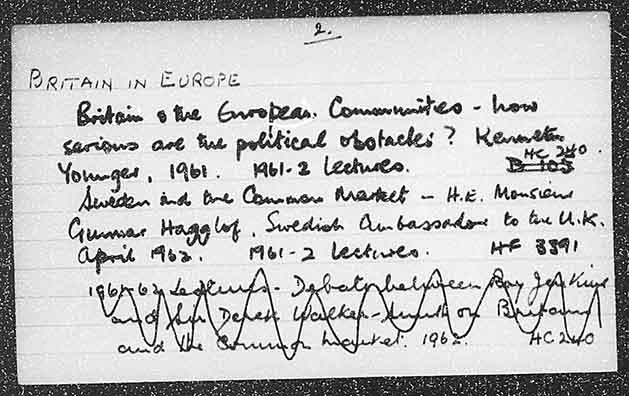 2.
BRITAIN IN EUROPE
Britain & the European Communities - how
serious are the political obstacles? Kenneth
Younger, 1961. 1961-2 Lectures. HC 240.
B 103
Sweden and the Common Market - H.E. Monsieur
Gunnar Hagglof, Swedish Ambassador to the U.K.
April 1962. 1961-2 Lectures. HF 3391
1961-62 Lectures - Debate between Roy Jenkins
and Sir Derek Walker-Smith on Britain
and the Common Market. 1962. HC 240